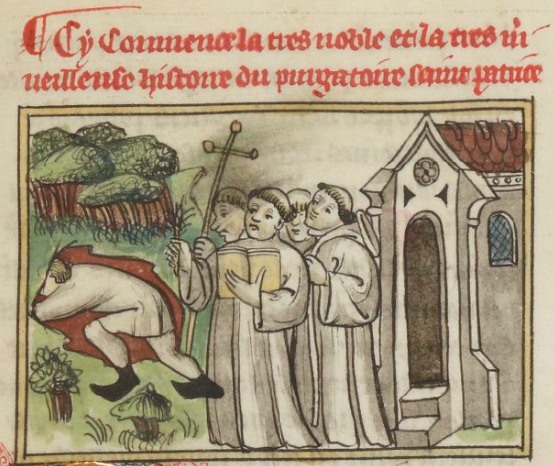 Cy Commence la tres noble et la tres m̃
ueilleuse histoire du purgatoire saint patrice